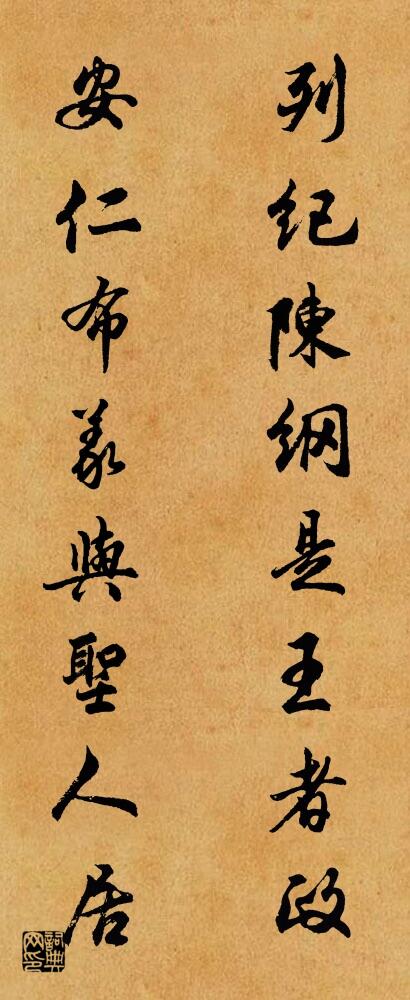 列纪陳纲是王者政
安仁布義與聖人居